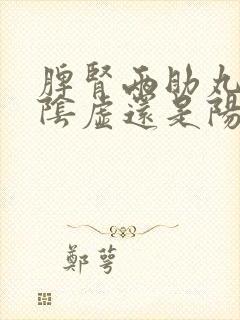 脾腎兩助丸
陰虛還是陽
鄭萼